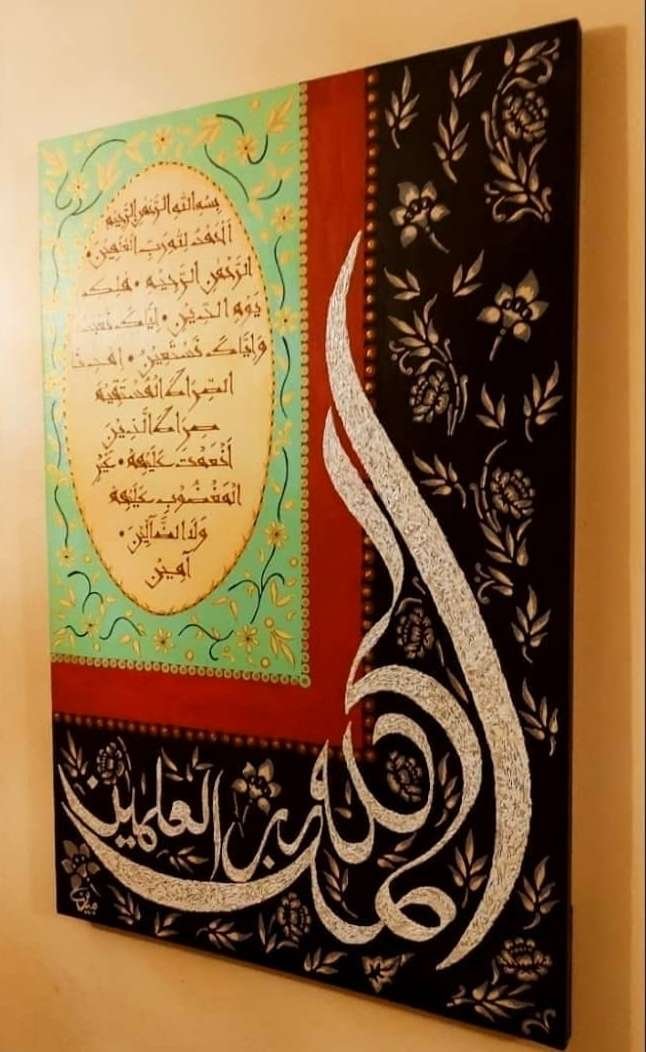 بسم الله الرحمن الرحيم
الحمد لله رب العلمين
الرحمن الرحيم • ملك
يوم الدين • إياك نعبد
وإياك نستعين • اهدنا
الصراط المستقيم
صراط الذين
أنعمت عليهم • غير
المغضوب عليهم
ولا الضآلين •
آمين
الحمد لله رب العلمين